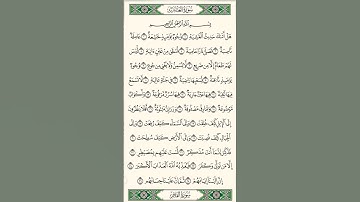 سُورَةُ الغَاشِيَةِ
بِسْمِ ٱللَّهِ ٱلرَّحْمَٰنِ ٱلرَّحِيمِ
هَلْ أَتَىٰكَ حَدِيثُ ٱلْغَٰشِيَةِ ١ وُجُوهٌ يَوْمَئِذٍ خَٰشِعَةٌ ٢ عَامِلَةٌ
نَّاصِبَةٌ ٣ تَصْلَىٰ نَارًا حَامِيَةً ٤ تُسْقَىٰ مِنْ عَيْنٍ ءَانِيَةٍ ٥ لَّيْسَ
لَهُمْ طَعَامٌ إِلَّا مِن ضَرِيعٍ ٦ لَّا يُسْمِنُ وَلَا يُغْنِى مِن جُوعٍ ٧
وُجُوهٌ يَوْمَئِذٍ نَّاعِمَةٌ ٨ لِّسَعْيِهَا رَاضِيَةٌ ٩ فِى جَنَّةٍ عَالِيَةٍ ١٠ لَّا تَسْمَعُ
فِيهَا لَٰغِيَةً ١١ فِيهَا عَيْنٌ جَارِيَةٌ ١٢ فِيهَا سُرُرٌ مَّرْفُوعَةٌ ١٣ وَأَكْوَابٌ
مَّوْضُوعَةٌ ١٤ وَنَمَارِقُ مَصْفُوفَةٌ ١٥ وَزَرَابِىُّ مَبْثُوثَةٌ ١٦ أَفَلَا يَنظُرُونَ
إِلَى ٱلْإِبِلِ كَيْفَ خُلِقَتْ ١٧ وَإِلَى ٱلسَّمَآءِ كَيْفَ رُفِعَتْ ١٨ وَإِلَى
ٱلْجِبَالِ كَيْفَ نُصِبَتْ ١٩ وَإِلَى ٱلْأَرْضِ كَيْفَ سُطِحَتْ ٢٠
فَذَكِّرْ إِنَّمَآ أَنتَ مُذَكِّرٌ ٢١ لَّسْتَ عَلَيْهِم بِمُصَيْطِرٍ ٢٢
إِلَّا مَن تَوَلَّىٰ وَكَفَرَ ٢٣ فَيُعَذِّبُهُ ٱللَّهُ ٱلْعَذَابَ ٱلْأَكْبَرَ ٢٤
إِنَّ إِلَيْنَآ إِيَابَهُمْ ٢٥ ثُمَّ إِنَّ عَلَيْنَا حِسَابَهُم ٢٦
سُورَةُ الفَجْرِ